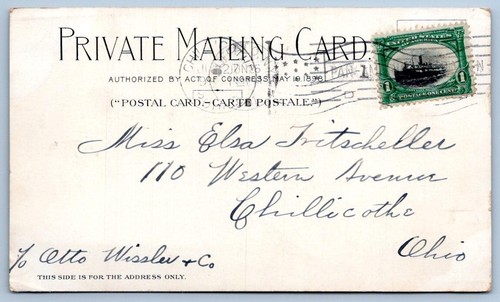 PRIVATE MAILING CARD.
AUTHORIZED BY ACT OF CONGRESS, MAY 19, 1898.
("POSTAL CARD.–CARTE POSTALE.")
UNITED STATES
1 1
POSTAGE ONE CENT
PAN-
Miss Elsa Fritscheller
110 Western Avenue
Chillicothe
Ohio
c/o Otto Wissler & Co
THIS SIDE IS FOR THE ADDRESS ONLY.